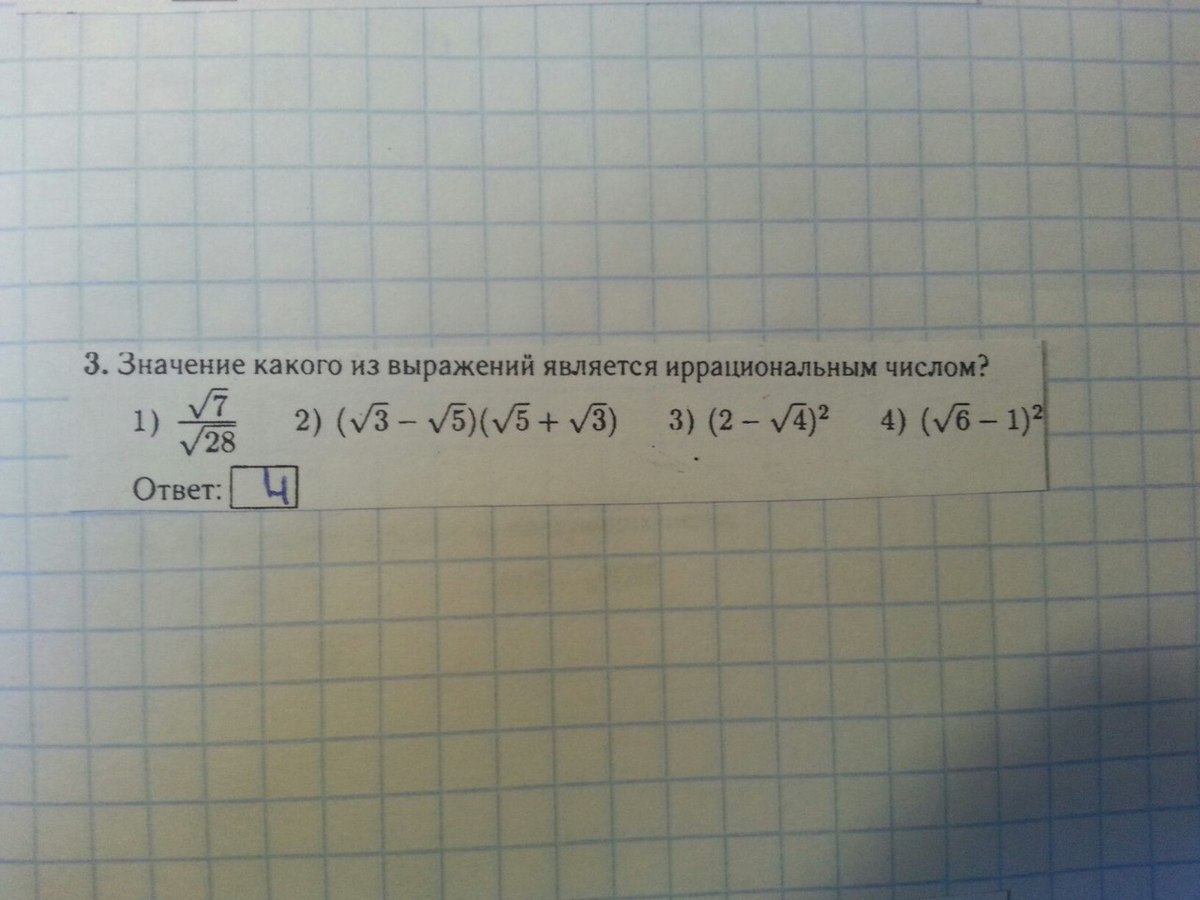 3. Значение какого из выражений является иррациональным числом?
1) √7/√28 2) (√3 − √5)(√5 + √3) 3) (2 − √4)² 4) (√6 − 1)²
Ответ: 4